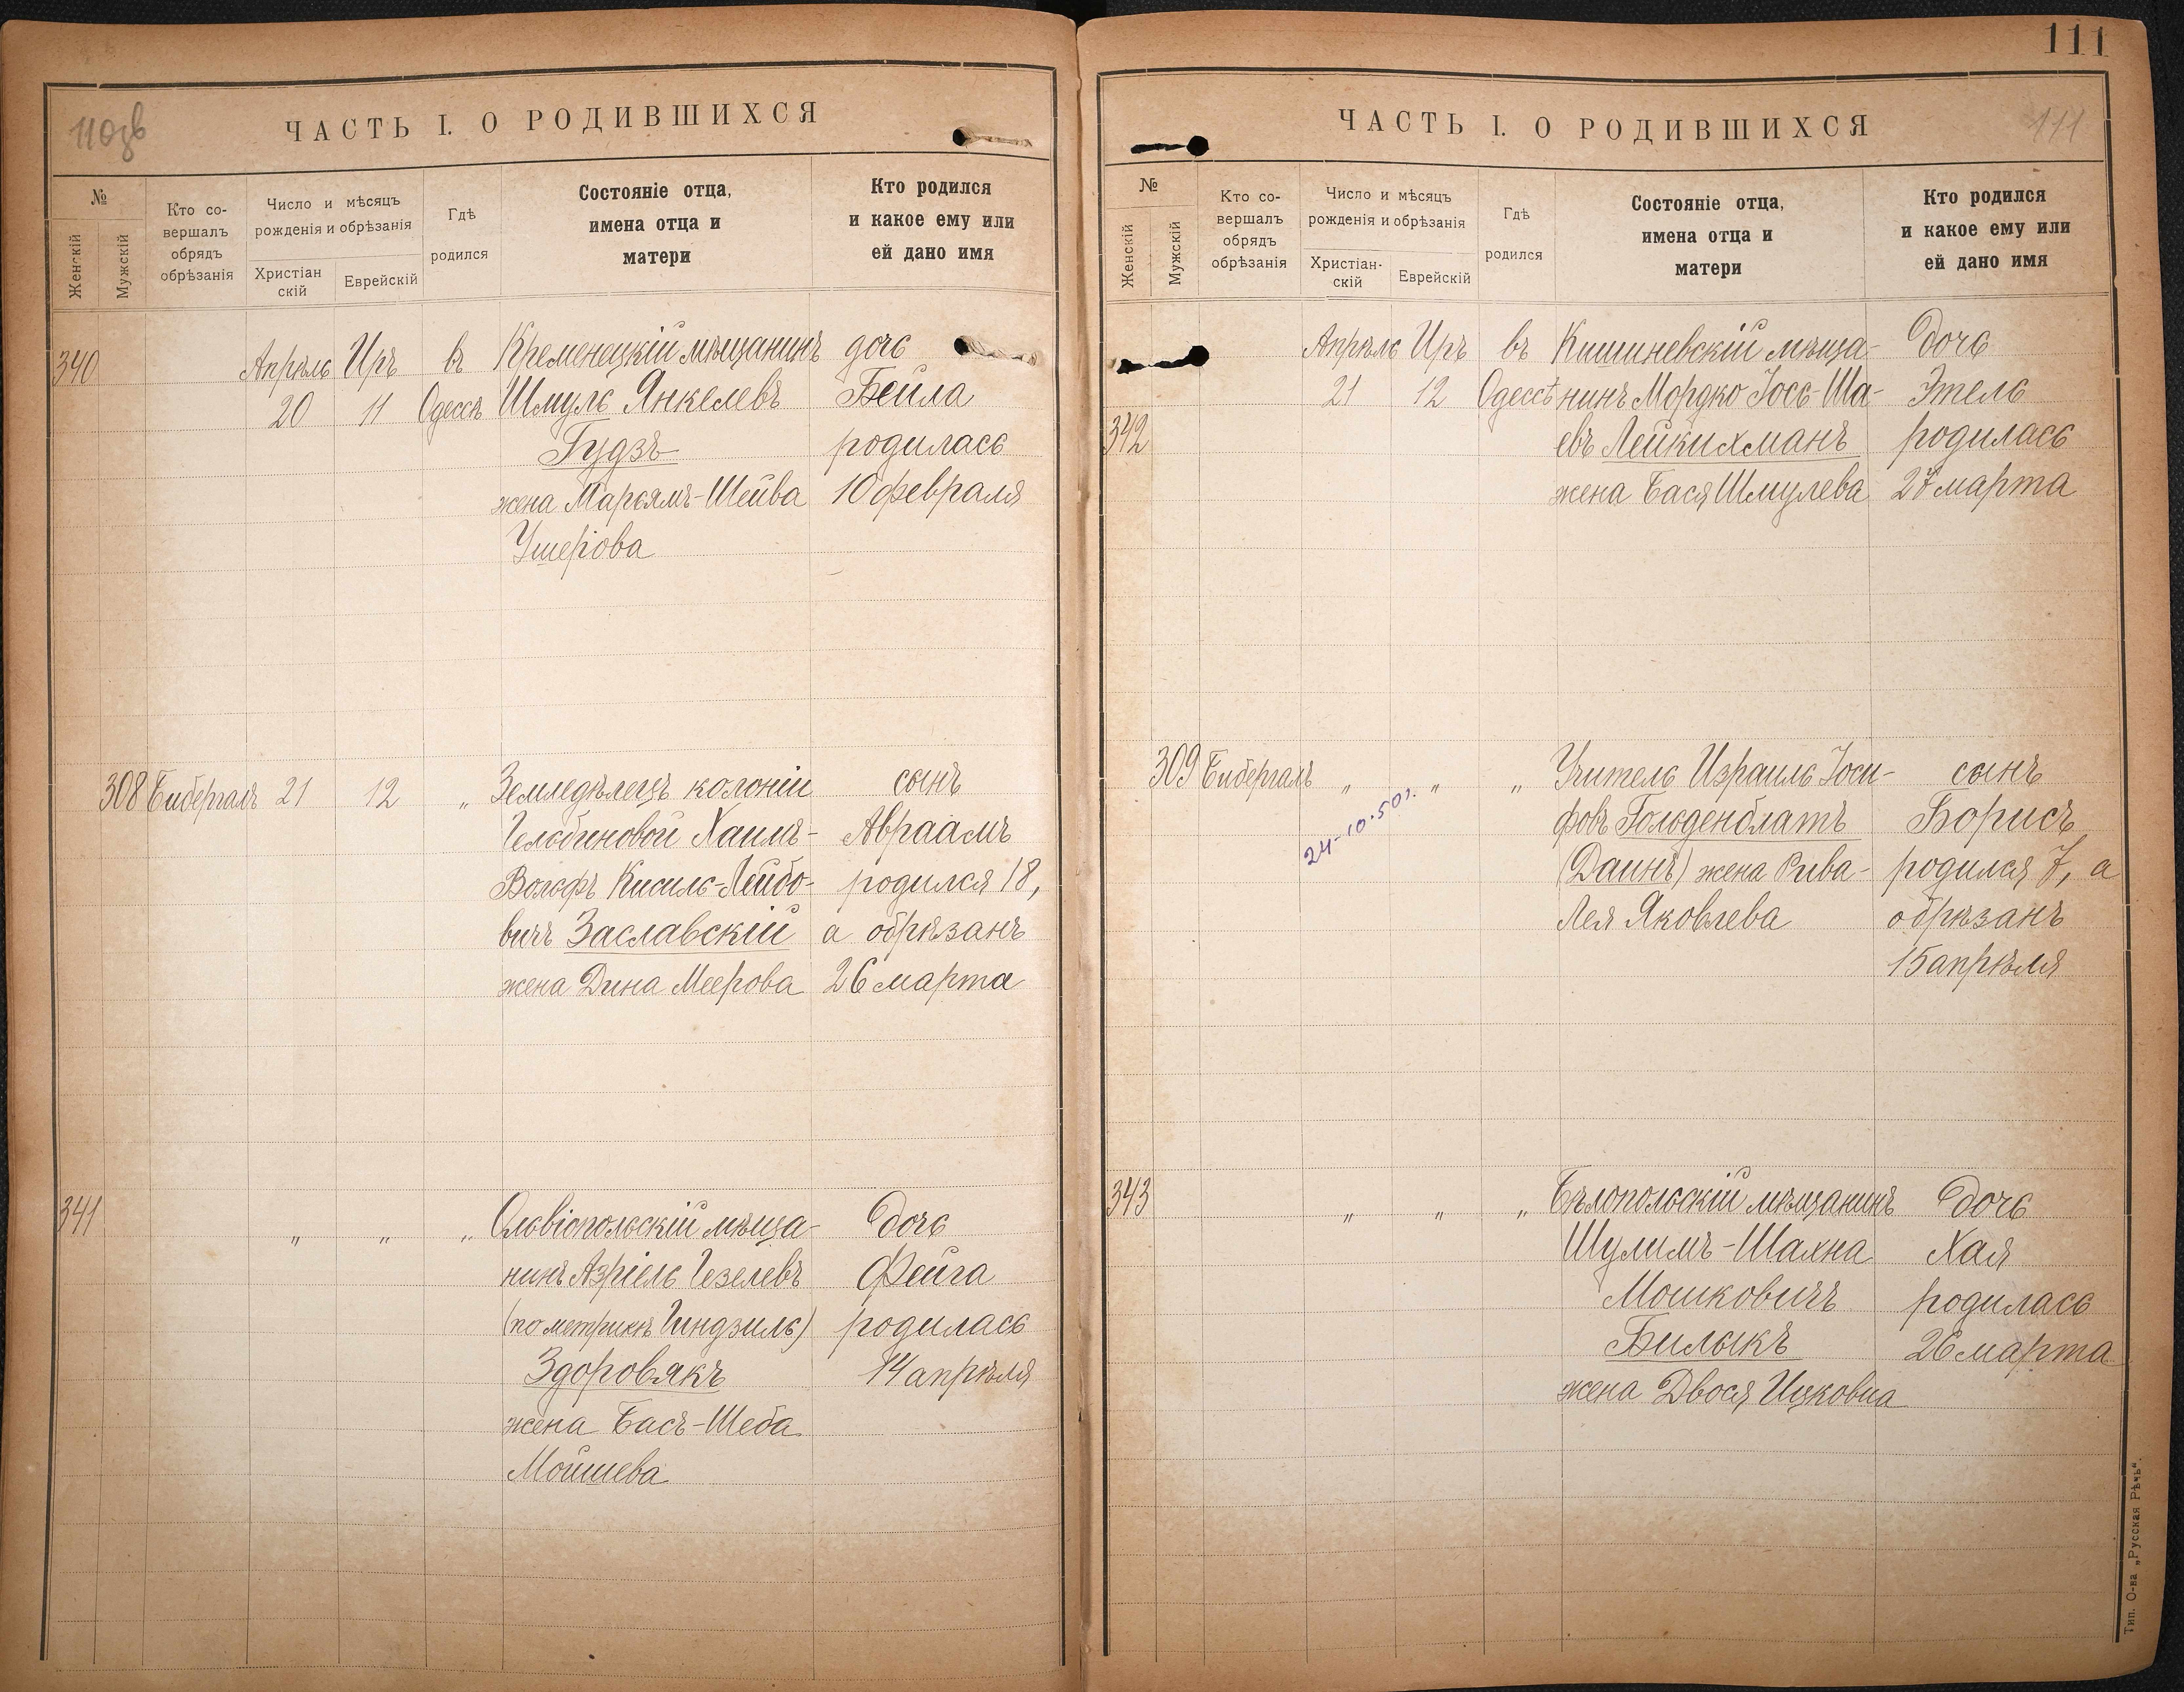 110зв
ЧАСТЬ I. О РОДИВШИХСЯ
№
Женскій
Мужскій
Кто со-
вершалъ
обрядъ
обрѣзанія
Число и мѣсяцъ
рожденія и обрѣзанія
Христіан
скій
Еврейскій
Гдѣ
родился
Состояніе отца,
имена отца и
матери
Кто родился
и какое ему или
ей дано имя
340
Апрѣль Иръ въ Кременецкій мѣщанинъ дочь
20 11 Одессѣ Шмуль Янкелевъ Бейла
Гудзъ родилась
жена Марьямъ-Шейва 10 февраля
Ушерова
308 Бибергалъ 21 12 „ Земледѣлецъ колоніи сынъ
Гельбиновой Хаимъ- Авраамъ
Вольфъ Кисиль-Лейбо- родился 18,
вичъ Заславскій а обрѣзанъ
жена Дина Меерова 26 марта
341 „ „ „ Ольвіопольскій мѣща- дочь
нинъ Азріель Гезелевъ Фейга
(по метрикѣ Гиндзиль) родилась
Здоровякъ 14 апрѣля
жена Бась-Шеба
Мойшева
111
ЧАСТЬ I. О РОДИВШИХСЯ
111
№
Женскій
Мужскій
Кто со-
вершалъ
обрядъ
обрѣзанія
Число и мѣсяцъ
рожденія и обрѣзанія
Христіан-
скій
Еврейскій
Гдѣ
родился
Состояніе отца,
имена отца и
матери
Кто родился
и какое ему или
ей дано имя
Апрѣль Иръ въ Кишиневскій мѣща- дочь
21 12 Одессѣ нинъ Мордко Іось-Ша- Этель
342 евъ Лейкихманъ родилась
жена Бася Шмулева 27 марта
309 Бибергалъ „ „ „ Учитель Израиль Іоси- сынъ
24-10.50г. фовъ Гольденблатъ Борисъ
(Даинъ) жена Рива- родился 7, а
Лея Яковлева обрѣзанъ
15 апрѣля
343 „ „ „ Бѣлопольскій мѣщанинъ дочь
Шулимъ-Шахна Хая
Мошковичъ родилась
Билыкъ 26 марта
жена Двося Ицковна
Тип. О-ва „Русская Рѣчь“.